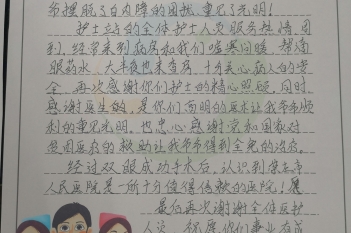 爷摆脱了白内障的困扰，重见了光明！
护士站的全体护士人员服务热情、周
到，经常来到病房和我们嘘寒问暖，帮滴
眼药水，大半夜也来查房，十分关心病人的安
全，再次感谢你们护士的精心照顾，同时
感谢医生的，是你们高明的医术让我爷爷顺
利的重见光明，也忠心感谢党和国家对
贫困医疗的救助让我爷爷得到全免的治疗。
经过双眼成功手术后，认识到
人民医院是一所十分值得信赖的医院！
最后再次谢谢全体医护
人员，祝愿你们事业有成